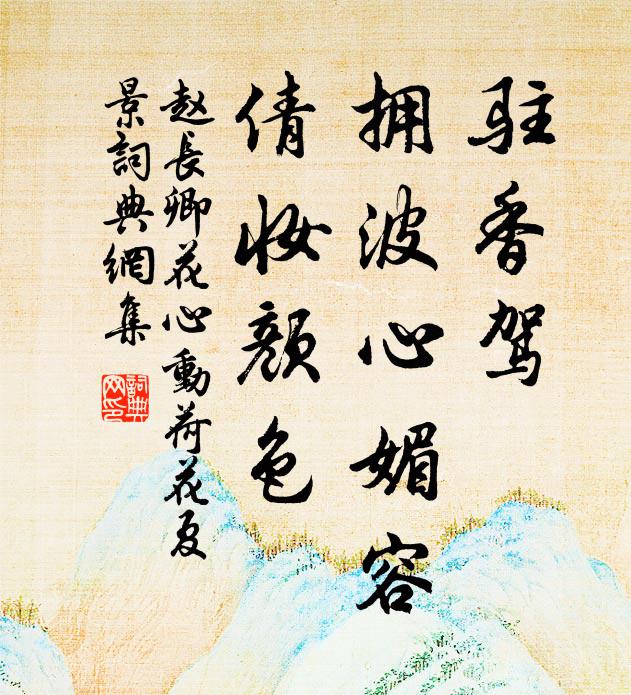 驻香驾
拥波心媚容
倩妆颜色
赵长卿花心動荷花夏
景詞典網集
詞典
网印